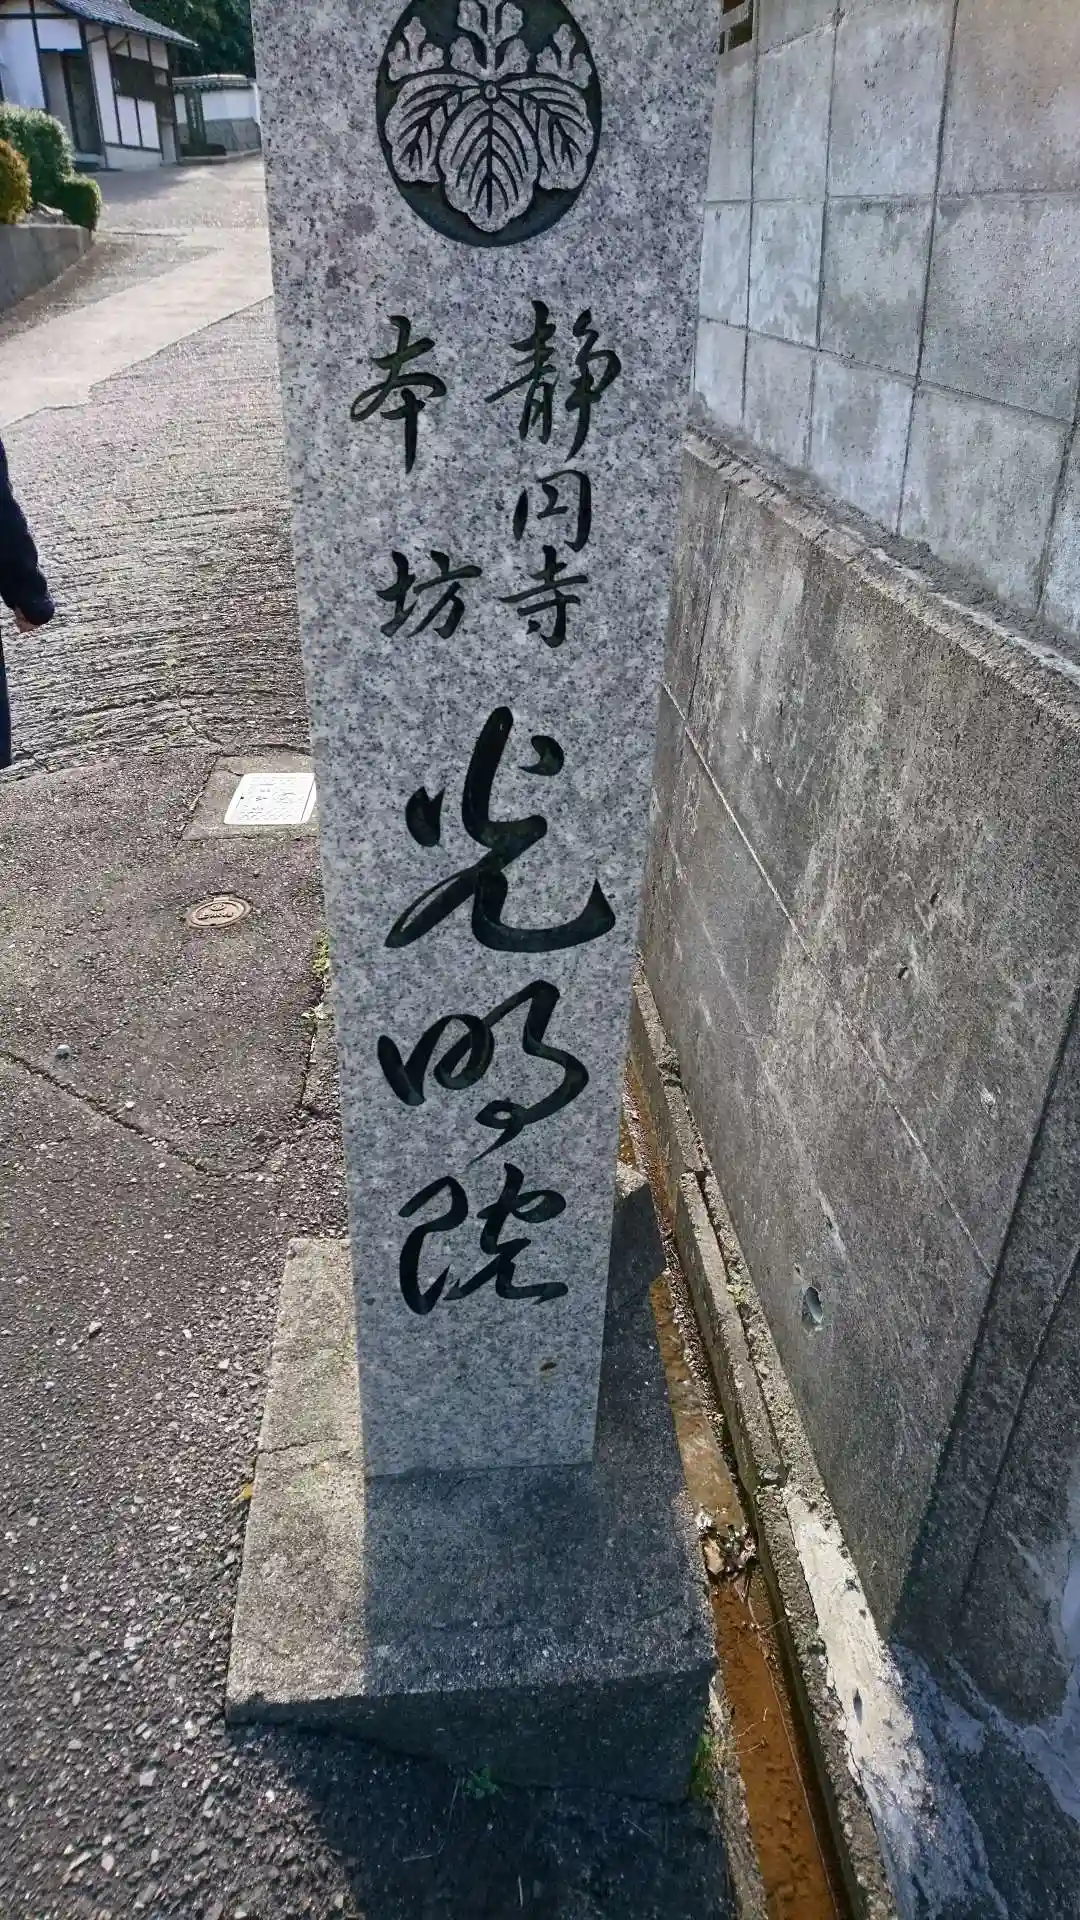 静円寺
本坊
光明院